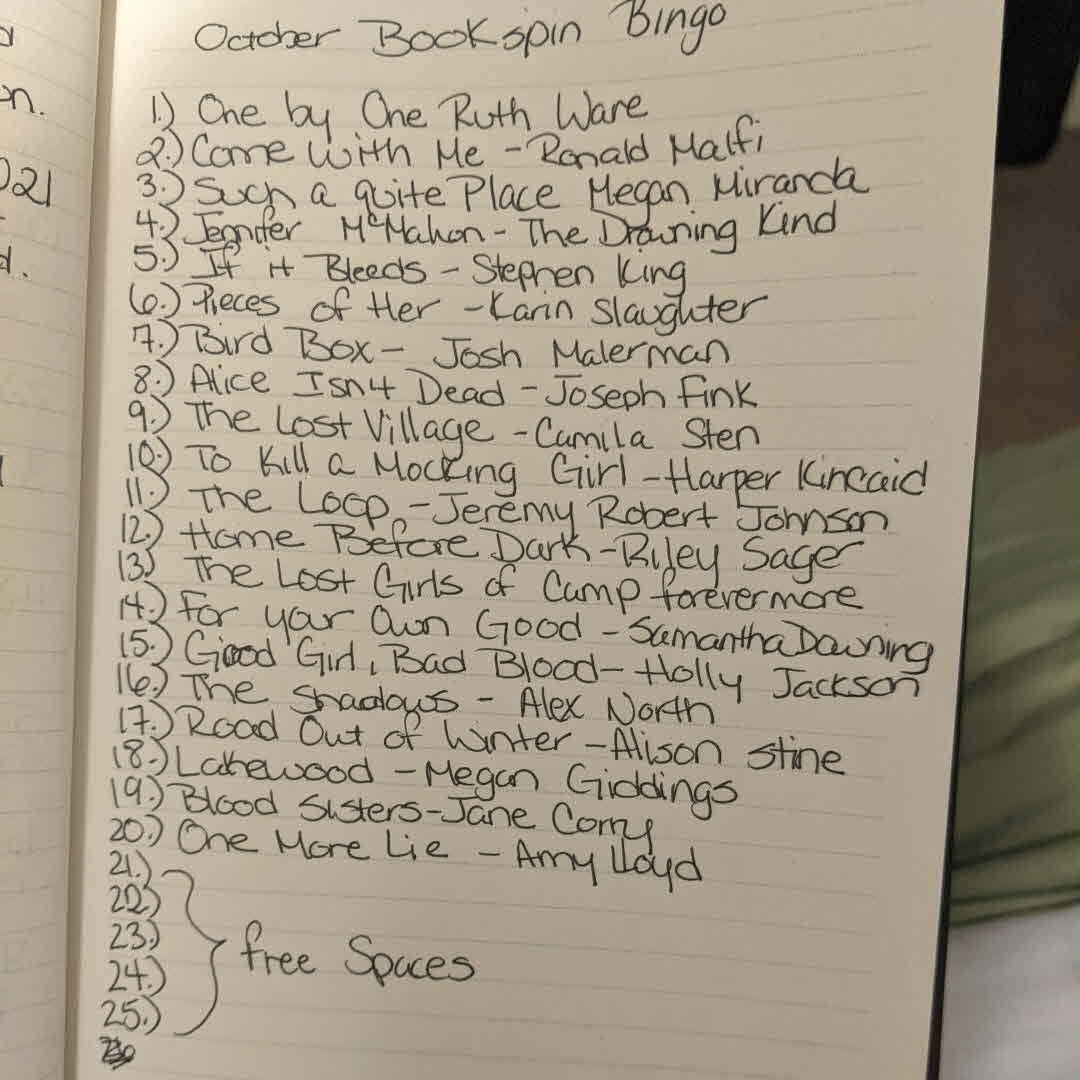 October Bookspin Bingo
1.) One by One Ruth Ware
2.) Come With Me - Ronald Malfi
3.) Such a quite Place Megan Miranda
4.) Jennifer McMahon - The Drowning Kind
5.) If It Bleeds - Stephen King
6.) Pieces of Her - Karin Slaughter
7.) Bird Box - Josh Malerman
8.) Alice Isn't Dead - Joseph Fink
9.) The Lost Village - Camila Sten
10.) To Kill a Mocking Girl - Harper Kincaid
11.) The Loop - Jeremy Robert Johnson
12.) Home Before Dark - Riley Sager
13.) The Lost Girls of Camp forevermore
14.) For your Own Good - Samantha Downing
15.) Good Girl, Bad Blood - Holly Jackson
16.) The Shadows - Alex North
17.) Road Out of Winter - Alison Stine
18.) Lakewood - Megan Giddings
19.) Blood Sisters - Jane Corry
20.) One More Lie - Amy Lloyd
21.)
22.)
23.) free Spaces
24.)
25.)
on.
2021
d.